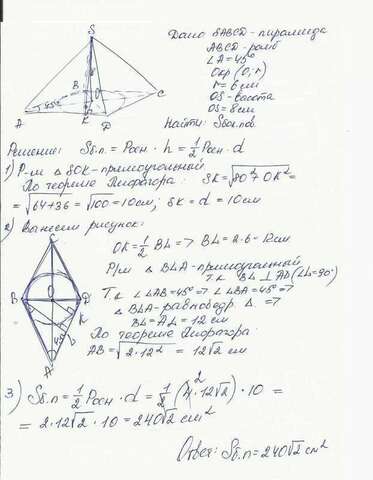 Дано SABCD - пирамида
ABCD - ромб
∠A = 45°
Окр (O, r)
r = 6 см
OS - высота
OS = 8 см
Найти: Sбок.пов.
S
B
C
A
45°
O
K
D
Решение: Sб.п = Pосн · h = 1/2 Pосн · d
1) Р-м △ SOK - прямоугольный
По теореме Пифагора: SK = √(SO² + OK²) =
= √(64+36) = √100 = 10 см; SK = d = 10 см
2) Вынесем рисунок:
C
B
O
D
K
L
A
OK = 1/2 BL => BL = 2·6 = 12 см
Р/м △ BLA - прямоугольный
т.к. BL ⊥ AD (∠L = 90°)
Т.к ∠LAB = 45° => ∠LBA = 45° =>
△ BLA - равнобедр △. =>
BL = AL = 12 см
По теореме Пифагора:
AB = √(2·12²) = 12√2 см
3) Sб.п = 1/2 Pосн · d = 1/2 (4·12√2) · 10 =
= 2·12√2 · 10 = 240√2 см²
Ответ: Sб.п = 240√2 см²